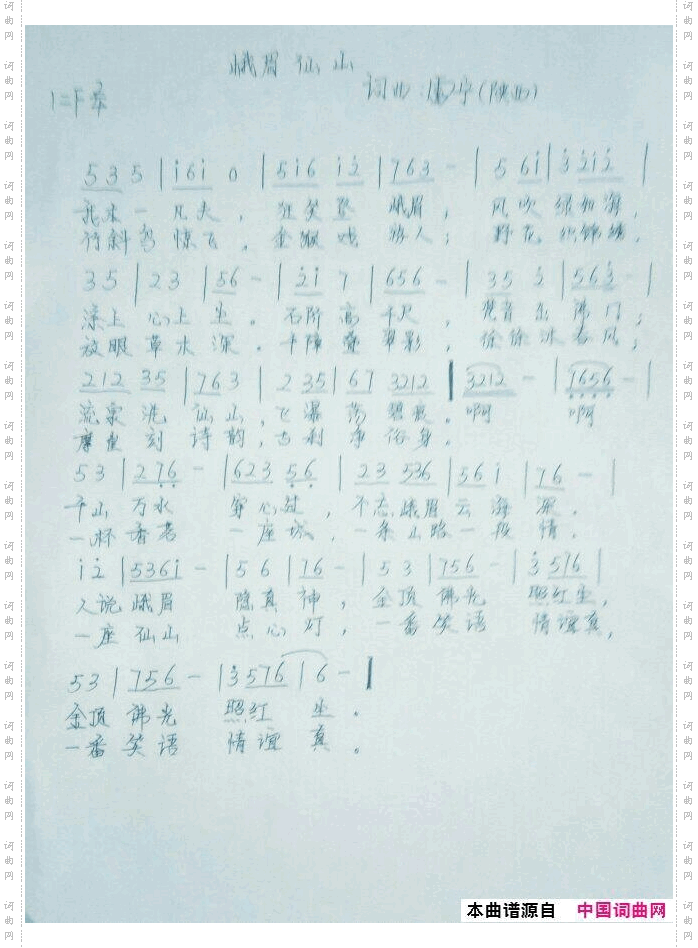 峨眉仙山
词曲:
(陕西)
1=F 2/4
5 3 5 | i 6 i 0 | 5 i 6 i 2 | 7 6 3 - | 5 6 i | 3 2 i 2 |
我本一凡夫，狂笑登峨眉，风吹绿如海，
竹斜鸟惊飞，金猴戏游人；野花织锦绣，
3 5 | 2 3 | 5 6 - | 2 i 7 | 6 5 6 - | 3 5 2 | 5 6 3 - |
漆上心上尘。石阶高千尺，梵音出佛门；
放眼草木深。千障叠翠影，徐徐沐春风；
2 1 2 3 5 | 7 6 3 | 2 3 5 | 6 7 3 2 1 2 | 3 2 1 2 - | 7 6 5 6 - |
流泉洗仙山，飞瀑荡碧波。啊 啊
摩崖刻诗韵，古刹净俗身。
5 3 | 2 7 6 - | 6 2 3 5 6 | 2 3 5 3 6 | 5 6 i | 7 6 - |
千山万水穿心过，不恋峨眉云海深。
一杯香茗一座城，一条山路一段情。
i 2 | 5 3 6 i - | 5 6 | 7 6 - | 5 3 | 7 5 6 - | 3 5 7 6 |
人说峨眉隐真神，金顶佛光照红尘，
一座仙山点心灯，一番笑语情谊真，
5 3 | 7 5 6 - | 3 5 7 6 | 6 - |
金顶佛光照红尘。
一番笑语情谊真。
本曲谱源自 中国词曲网